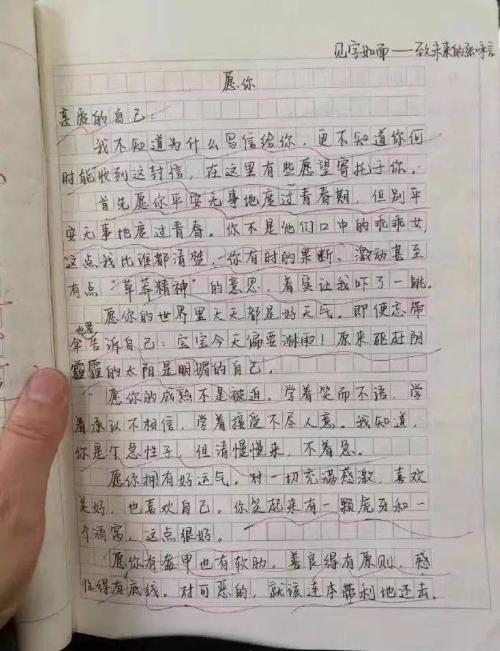 见字如面——致未来的张咏言
愿你
亲爱的自己：
我不知道为什么写信给你，更不知道你何
时能收到这封信，在这里有些愿望寄托于你。
首先愿你平安无事地度过青春期，但别平
安无事地度过青春。你不是他们口中的乖乖女，
这点我比谁都清楚，你有时的果断、激动甚至
有点“草莽精神”的意思，着实让我吓了一跳。
愿你的世界里天天都是好天气。即使忘带
伞也要告诉自己：宝宝今天偏要淋雨！原来驱赶阴
霾的太阳是明媚的自己。
愿你的成熟不是被迫。学着笑而不语，学
着承认不相信，学着接受不尽人意。我知道，
你是个急性子，但请慢慢来，不着急。
愿你拥有好运气。对一切充满感激，喜欢
美好，也喜欢自己。你笑起来有一颗虎牙和一
个酒窝，这点很好。
愿你有盔甲也有软肋，善良得有原则，感
性得有底线。对可恶的，就该连本带利地还击。